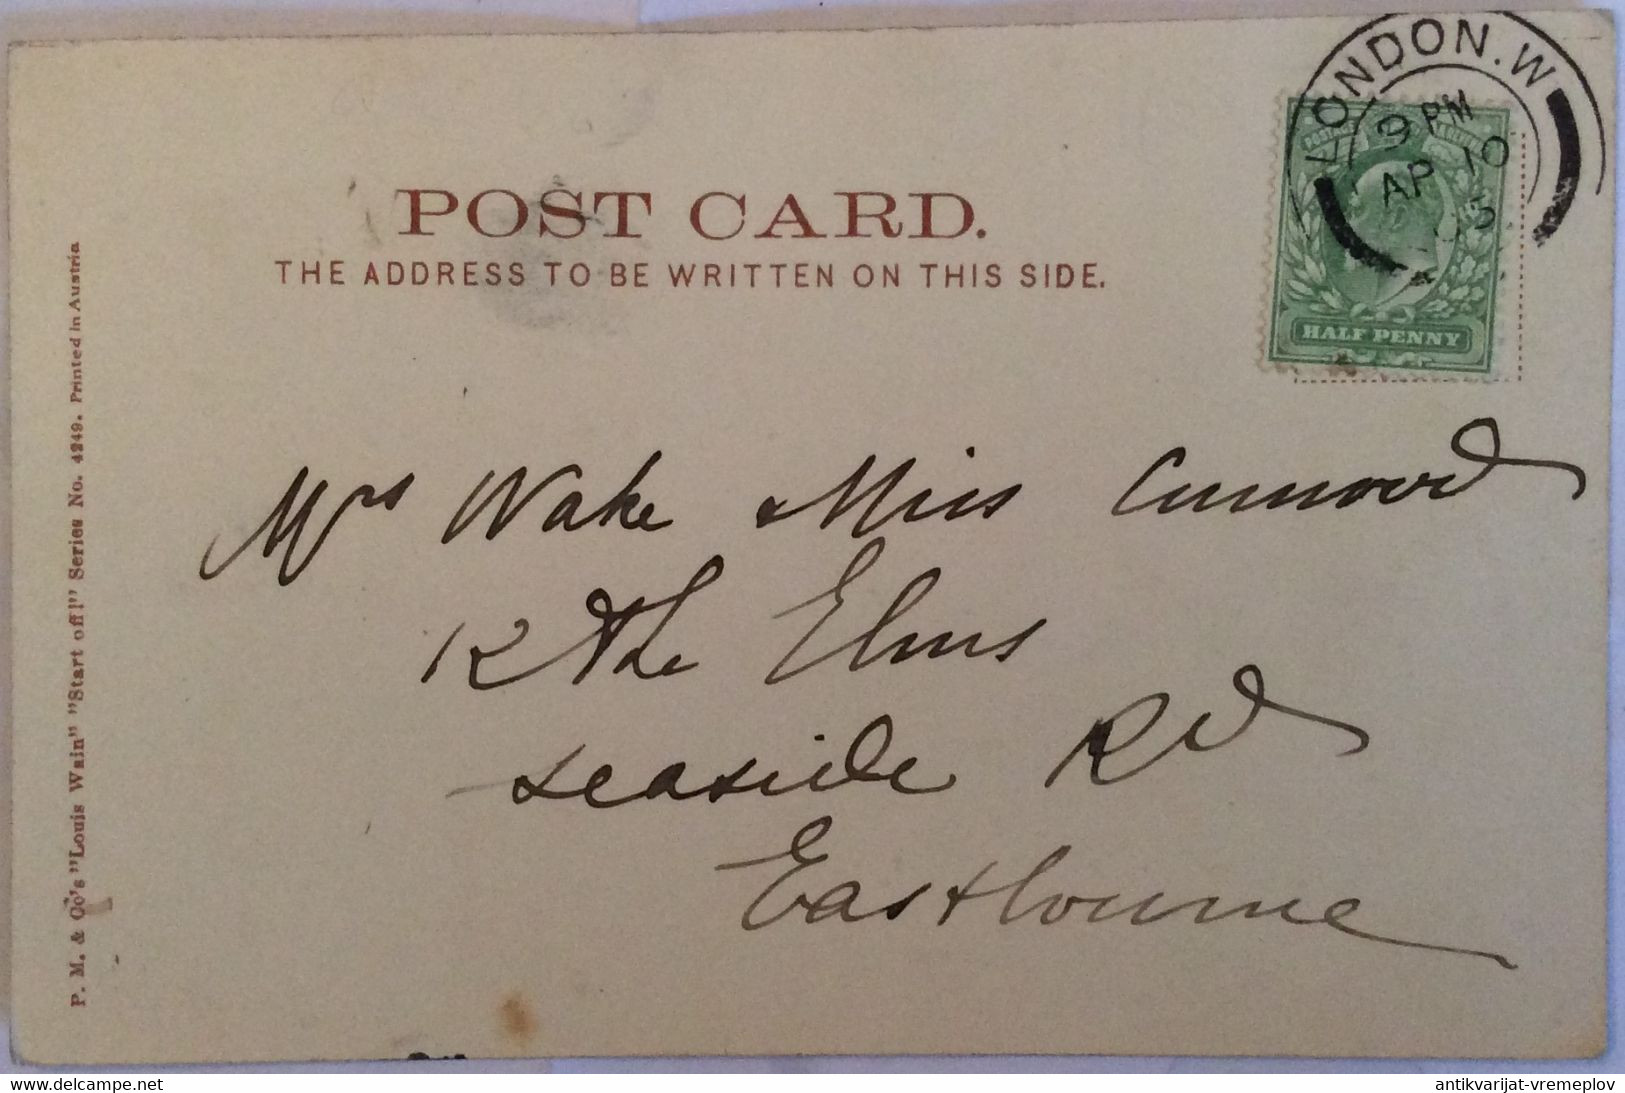 LONDON. W
9 PM
AP 10
05
HALF PENNY
POST CARD.
THE ADDRESS TO BE WRITTEN ON THIS SIDE.
P. M. & Co's "Louis Wain" "Start off!" Series No. 4249. Printed in Austria
Mrs Wake & Miss
12 The Elms
Seaside Rd
Eastbourne
www.delcampe.net
antikvarijat-vremeplov